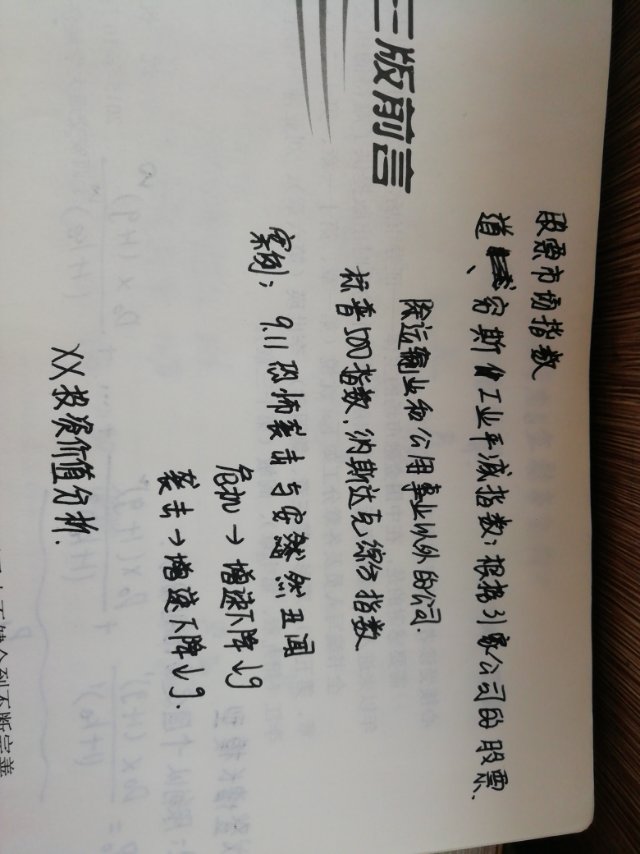 三版前言
股票市场指数
道、穷斯工业平减指数；根据31家公司的股票
除运输业和公用事业以外的公司.
标普500指数.纳斯达克综合指数
案例；9.11恐怖袭击与安然丑闻
危机→增速下降↓g
袭击→增速下降↓g.
XX投资价值分析.